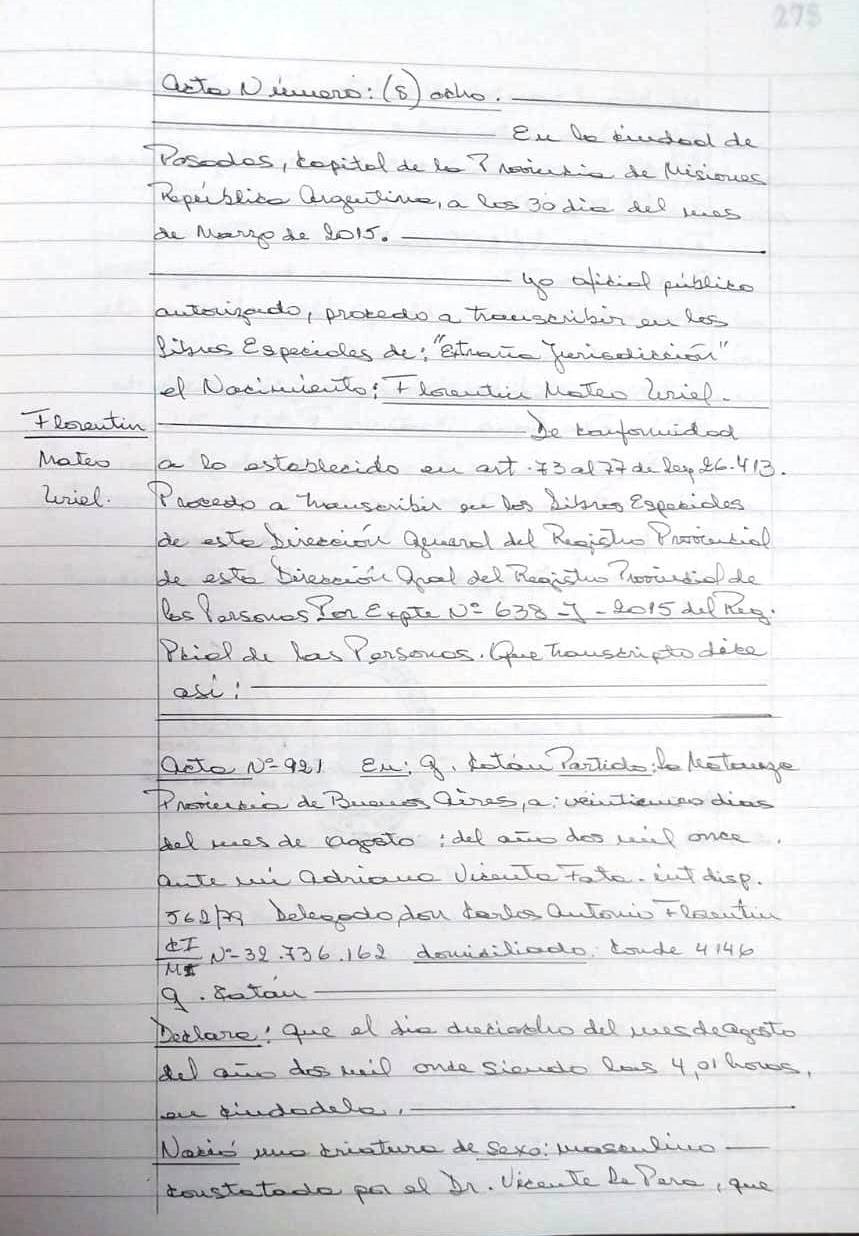 275
Acta Número: (8) ocho.
En la ciudad de
Posadas, capital de la Provincia de Misiones
República Argentina, a los 30 dia del mes
de Marzo de 2015.
yo oficial público
autorizado, procedo a transcribir en los
Libros Especiales de: "Extraña Jurisdicción"
el Nacimiento: Florentin Mateo Uriel.
De conformidad
Florentin
Mateo
Uriel.
a lo establecido en art. 73 al 77 de Ley 26.413.
Procedo a transcribir en los Libros Especiales
de esta Dirección General del Registro Provincial
de esta Dirección Gral del Registro Provincial de
las Personas Por Expte Nº 638-J-2015 del Reg.
Pcial de las Personas. Que transcripto dice
asi:
Acta Nº 921 En: G. Catán Partido: La Matanza
Provincia de Buenos Aires, a: veinticinco dias
del mes de agosto: del año dos mil once.
Ante mi Adriana Vicenta Fata. int disp.
562/79 Delegado, don Carlos Antonio Florentin
CI
MI Nº 32.736.162 domiciliado: Conde 4146
G. Catan
Declara: que el dia dieciocho del mes de agosto
del año dos mil once siendo las 4,01 horas,
en ciudadela,
Nació una criatura de sexo: masculino
constatada por el Dr. Vicente La Pera, que